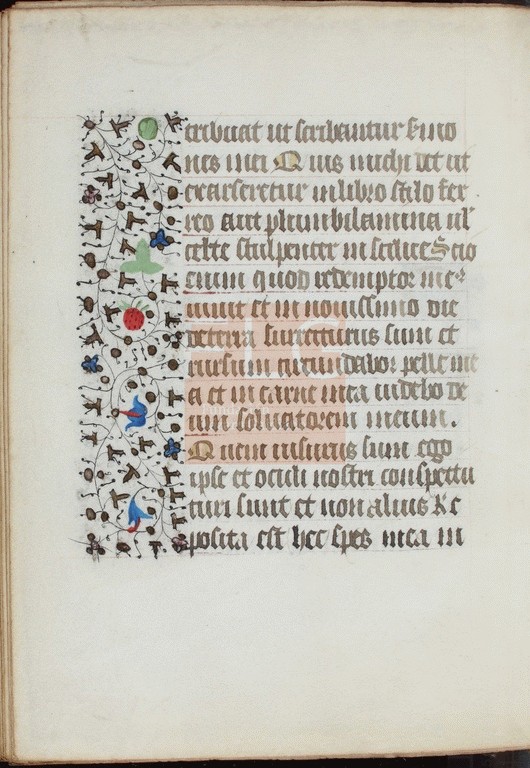 tribuat ut scribantur sermo
nes mei Quis michi det ut
exarseretur in libro stilo fer
reo aut plumbi lamina uł
celte sculpentur in scilice Scio
enim quod redemptor me⁹
uiuit et in nouissimo die
de terra surrecturus sum et
rursum circundabor pelle me
a et in carne mea uidebo de
um saluatorem meum.
Quem uisurus sum ego
ipse et oculi nostri conspectu
turi sunt et non alius Re
posita est hec spes mea in